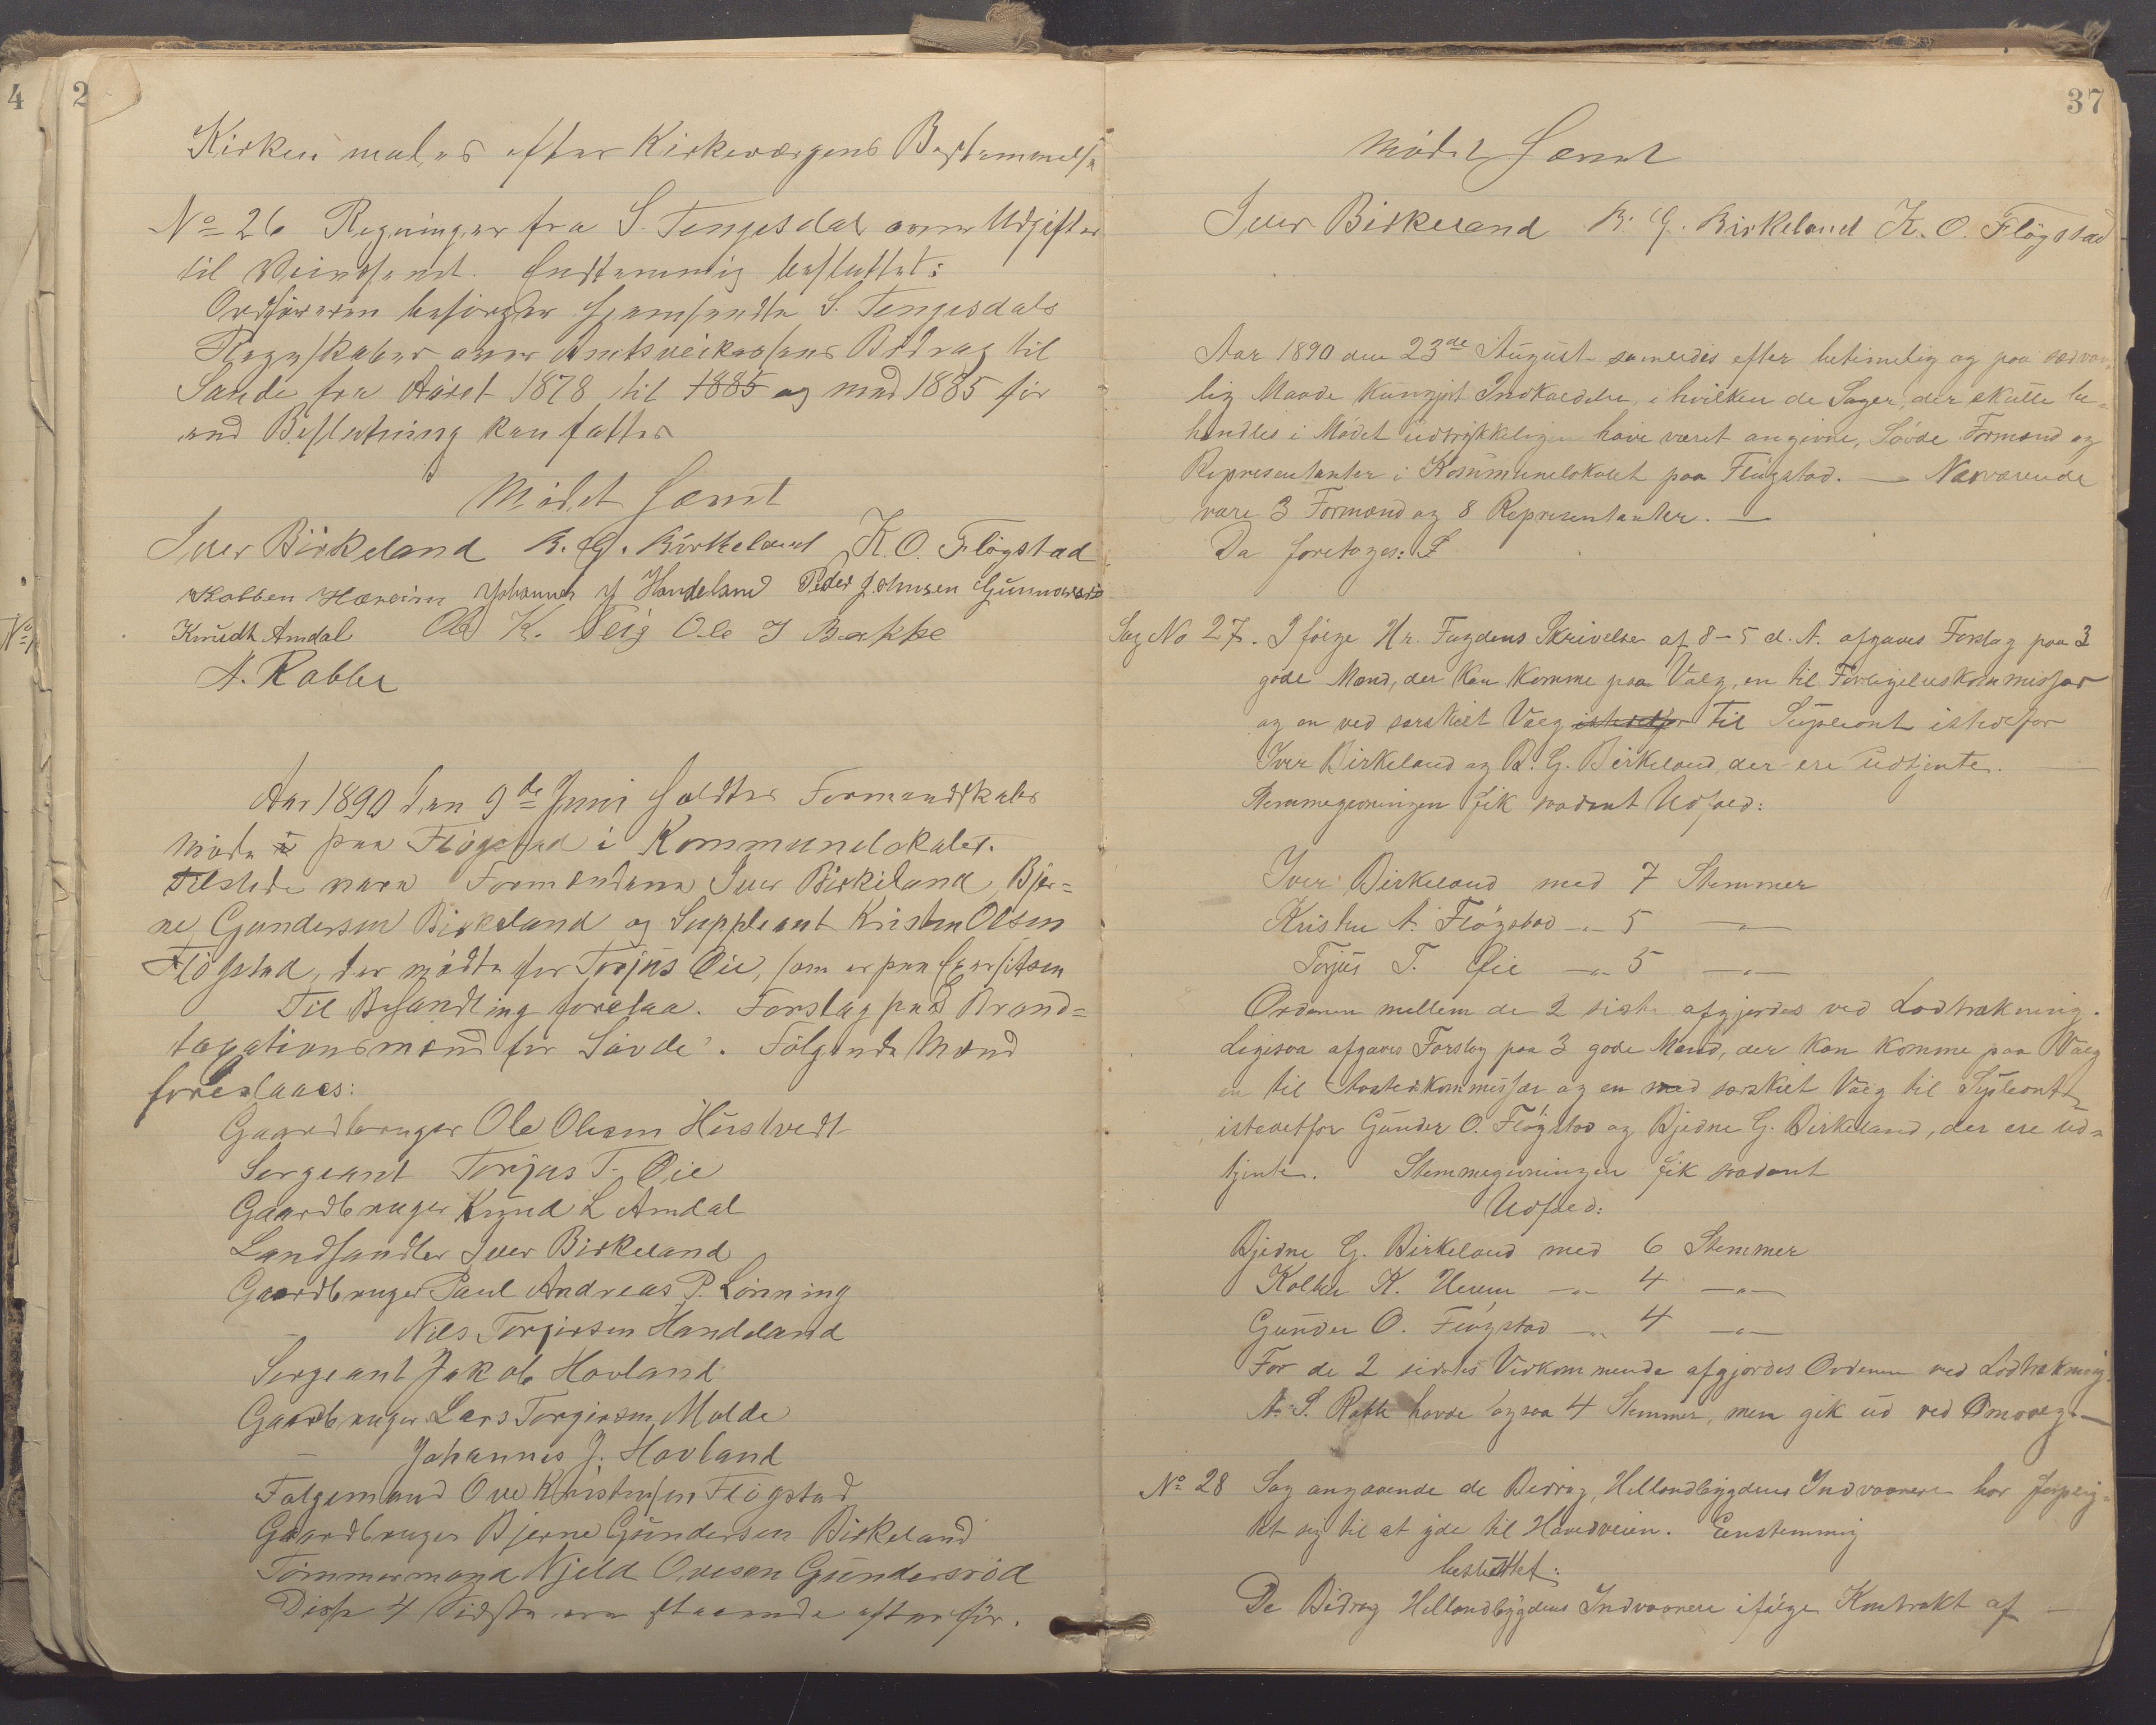 4
2
Kirken males efter Kirkeværgens Bestemmelse
No 26 Regninger fra S. Tengesdal over Udgifter
til Veivæsenet. Enstemmig besluttet:
Ordføreren besørger hjemsendte S. Tengesdals
Regnskaber over Amtsveikassens Bidrag til
Sande fra Aaret 1878 til 1885 og med 1885 før
end Beslutning kan fattes
Mødet hævet
Iver Birkeland B. G. Birkeland K. O. Fløgstad
Kolben Hæreim Johannes J Handeland Peder Johnsen Gunnarsrø
Knudt Amdal Ole K. Teig Ole J Bakke
N. Rabbe
No
Aar 1890 den 9de Juni holdtes Formandskabs
møde i paa Fløgstad i Kommunelokalet.
Tilstede vare Formændene Iver Birkeland, Bjer=
ne Gundersen Birkeland og Suppleant Kristen Olsen
Fløgstad, der mødte for Torjus Øie, som er paa Exersitsen
Til Behandling forelaa. Forslag paa Brand=
taxationsmænd for Søvde. Følgende Mænd
foreslaaes:
Gaardbruger Ole Olsen Hustvedt
Sergeant Torjus T. Øie
Gaardbruger Knud L Amdal
Landhandler Iver Birkeland
Gaardbruger Paul Andreas P. Lønning
— Nils Torgersen Handeland
Sergeant Jakob Hovland
Gaardbruger Lars Torgersen Molde
— Johannes J. Hovland
Følgemand Ove Kristensen Fløgstad
Gaardbruger Bjerne Gundersen Birkeland
Tømmermand Njeld Ovesen Gundersrød
Disse 4 sidste ere staaende efter før.
37
Mødet hævet
Iver Birkeland B. G. Birkeland K. O. Fløgstad
Aar 1890 den 23de August samledes efter betimelig og paa sædvan-
lig Maade kungjort Indkaldelse, i hvilken de Sager, der skulle be-
handles i Mødet udtrykkeligen have været angivne, Søvde Formænd og
Representanter i Kommunelokalet paa Fløgstad. — Nærværende
vare 3 Formænd og 8 Representanter. —
Da foretoges:
Sag No 27. Ifølge Hr. Fogdens Skrivelse af 8-5 d. A. afgaves Forslag paa 3
gode Mænd, der kan komme paa Valg, en til Forligelseskommissær
og en ved særskilt Valg istedetfor til Supleant istedefor
Iver Birkeland og B. G. Birkeland, der ere udtjente.
Stemmegivningen fik saadant Udfald:
Iver Birkeland med 7 Stemmer
Kristen A. Fløgstad -"- 5 -"-
Torjus T. Øie -"- 5 -"-
Ordenen mellem de 2 siste afgjordes ved Lodtrækning.
Ligesaa afgaves Forslag paa 3 gode Mænd, der kan komme paa Valg
en til kommissær og en med særskilt Valg til Supleant
istedetfor Gunder O. Fløgstad og Bjedne G. Birkeland, der ere ud=
tjente. Stemmegivningen fik saadant
Udfald:
Bjedne G. Birkeland med 6 Stemmer
Kolben K. Herem -"- 4 -"-
Gunder O. Fløgstad -"- 4 -"-
For de 2 sidstes Vedkommende afgjordes Ordenen ved Lodtrækning.
N. S. Rabbe havde ogsaa 4 Stemmer, men gik ud ved Omvalg. —
No 28 Sag angaaende de Bidrag, Hellandbygdens Indvaanere har forplig-
tet sig til at yde til Hovedveien. Eenstemmig
besluttet:
De Bidrag Hellandbygdens Indvaanere ifølge Kontrakt af —